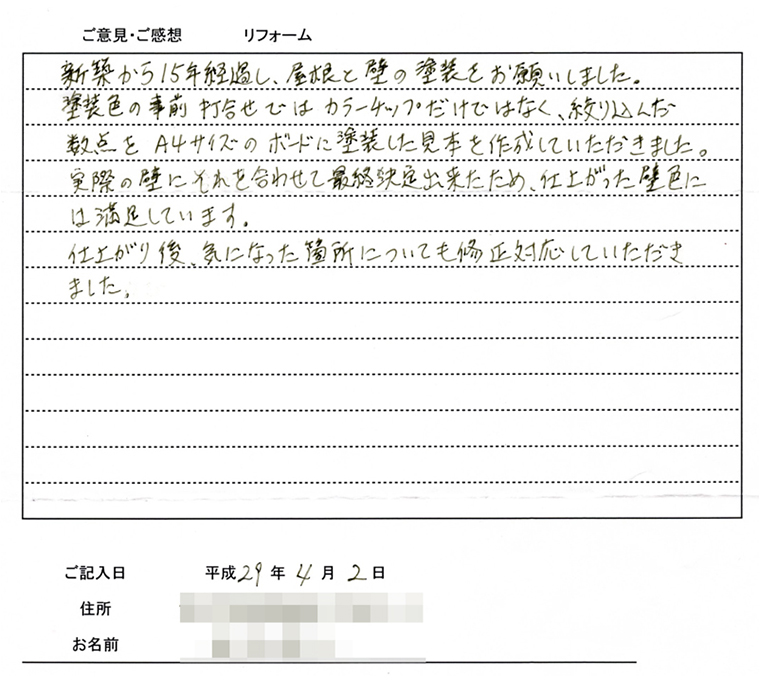 ご意見・ご感想 リフォーム
新築から15年経過し、屋根と壁の塗装をお願いしました。
塗装色の事前打合せではカラーチップだけではなく、絞り込んだ
数点をA4サイズのボードに塗装した見本を作成していただきました。
実際の壁にそれを合わせて最終決定出来たため、仕上がった壁色に
は満足しています。
仕上がり後、気になった箇所についても修正対応していただき
ました。
ご記入日 平成29年4月2日
住所
お名前